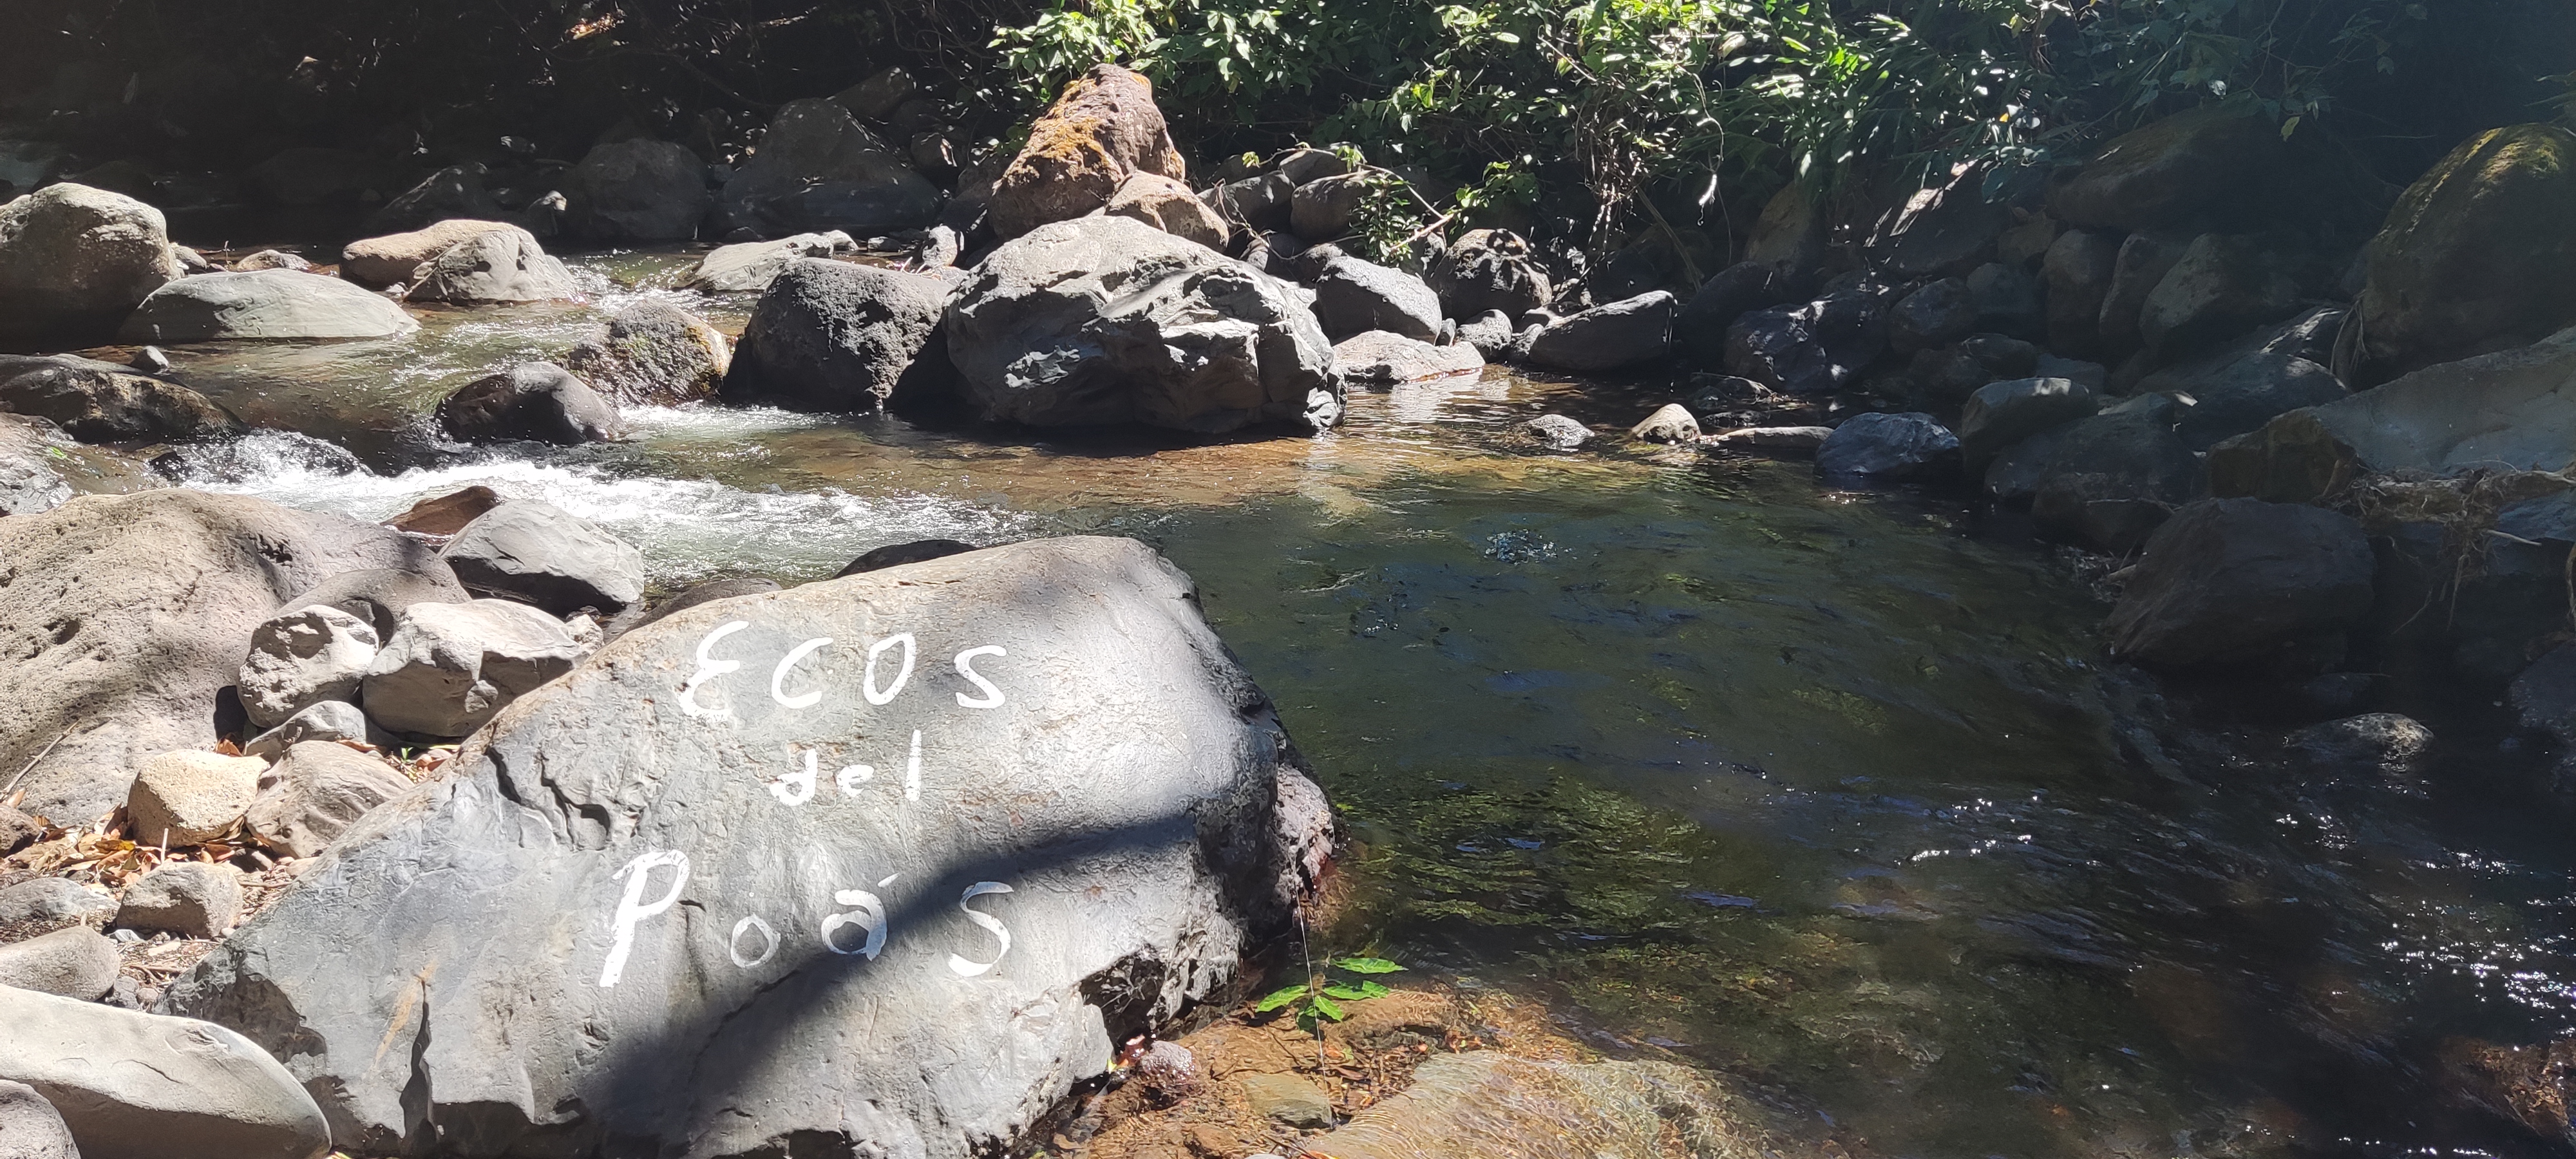 Ecos
del
Poás